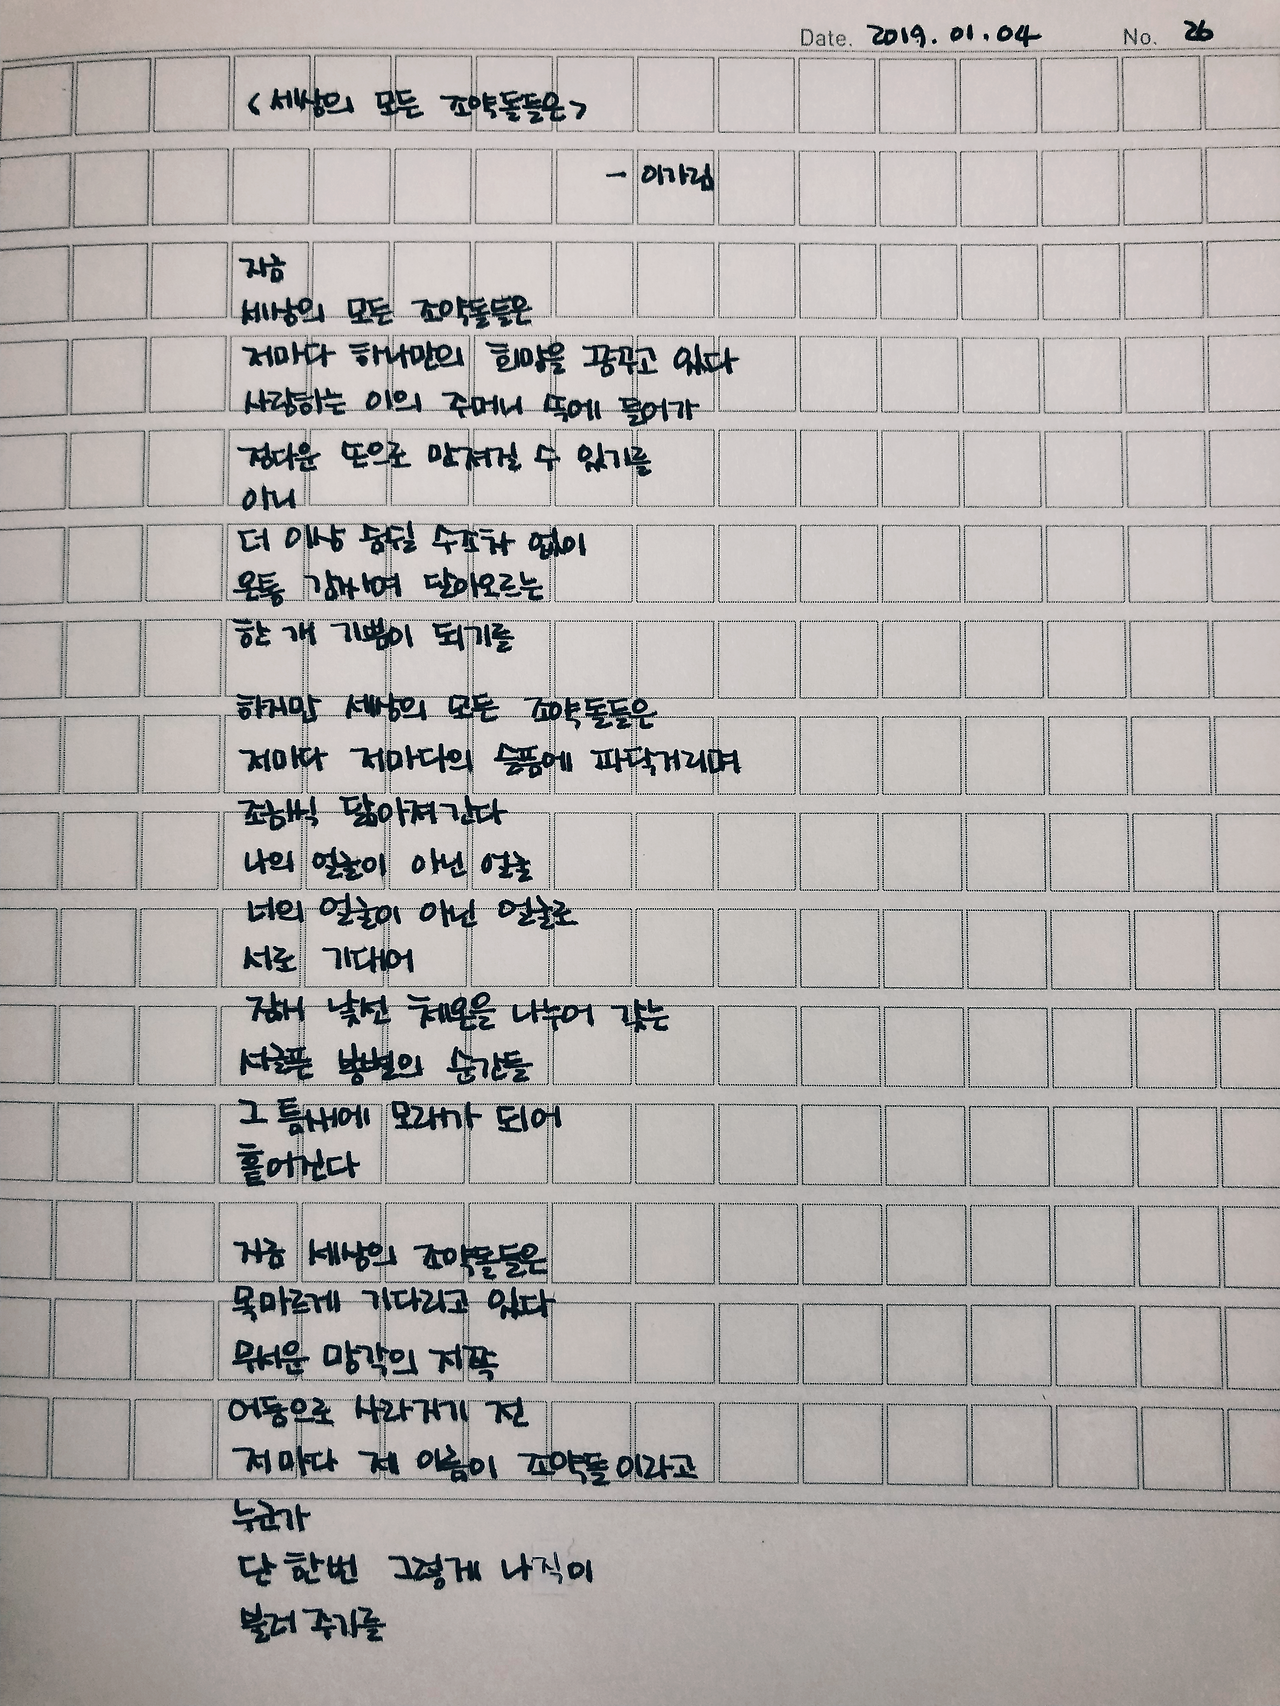 Date. 2019. 01. 04 No. 26
<세상의 모든 조약돌들은>
- 이가림
지금
세상의 모든 조약돌들은
저마다 하나만의 희망을 꿈꾸고 있다
사랑하는 이의 주머니 속에 들어가
정다운 손으로 만져질 수 있기를
아니
더 이상 숨쉴 수조차 없이
온통 감싸며 달아오르는
한 개 기쁨이 되기를
하지만 세상의 모든 조약돌들은
저마다 저마다의 슬픔에 파닥거리며
조금씩 닳아져간다
나의 얼굴이 아닌 얼굴
너의 얼굴이 아닌 얼굴로
서로 기대어
잠시 낯선 체온을 나누어 갖는
서글픈 봉별의 순간들
그 틈새에 모래가 되어
흩어진다
지금 세상의 조약돌들은
목마르게 기다리고 있다
무서운 망각의 저쪽
어둠으로 사라지기 전
저마다 제 이름이 조약돌이라고
누군가
단 한번 그렇게 나직이
불러 주기를